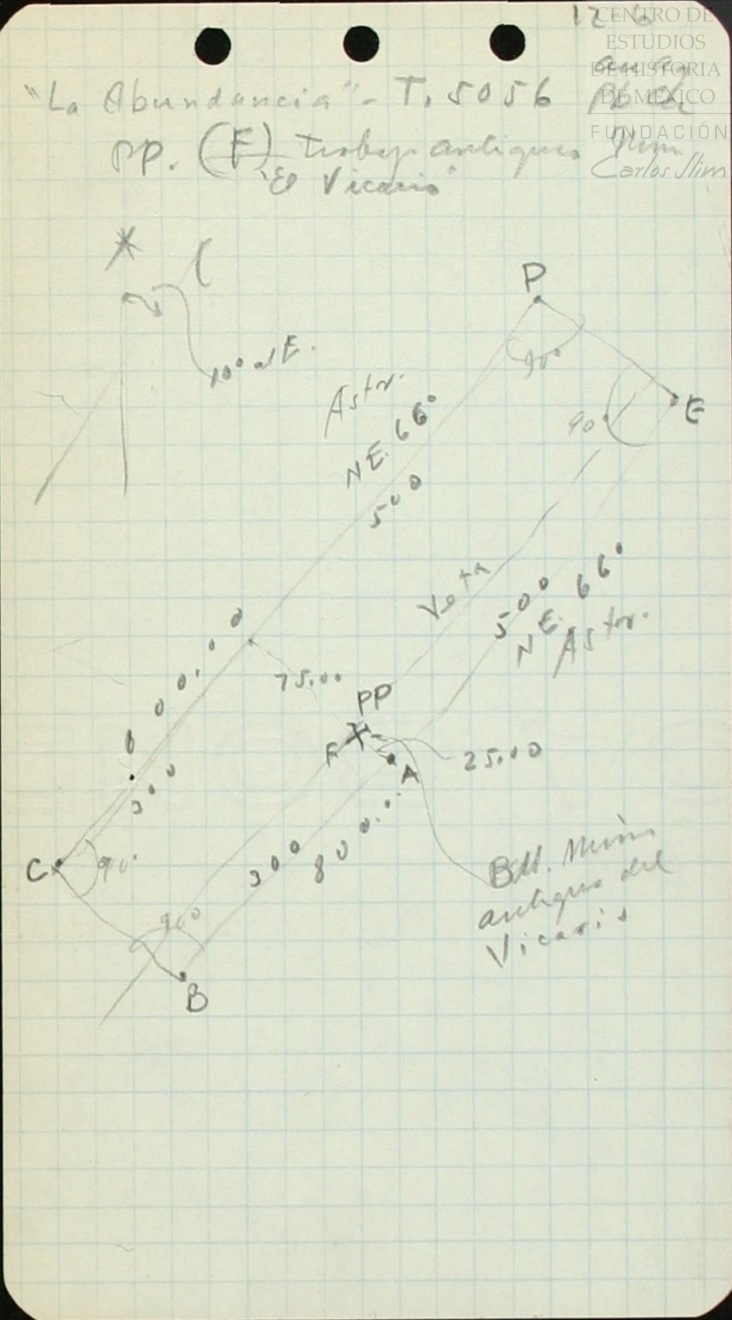 CENTRO DE
ESTUDIOS
DE HISTORIA
DE MÉXICO
FUNDACIÓN
Carlos Slim
"La Abundancia" - T. 5056
PP. (F) trabajo antiguo
"El Vicario"
10° NE.
P
90°
E
90°
Astr.
NE. 66°
500
Veta
500
NE. 66°
Astr.
800.00
75.00
PP
F
A
25.00
300
C
90°
300
800.00
90°
B
antiguo del
Vicario